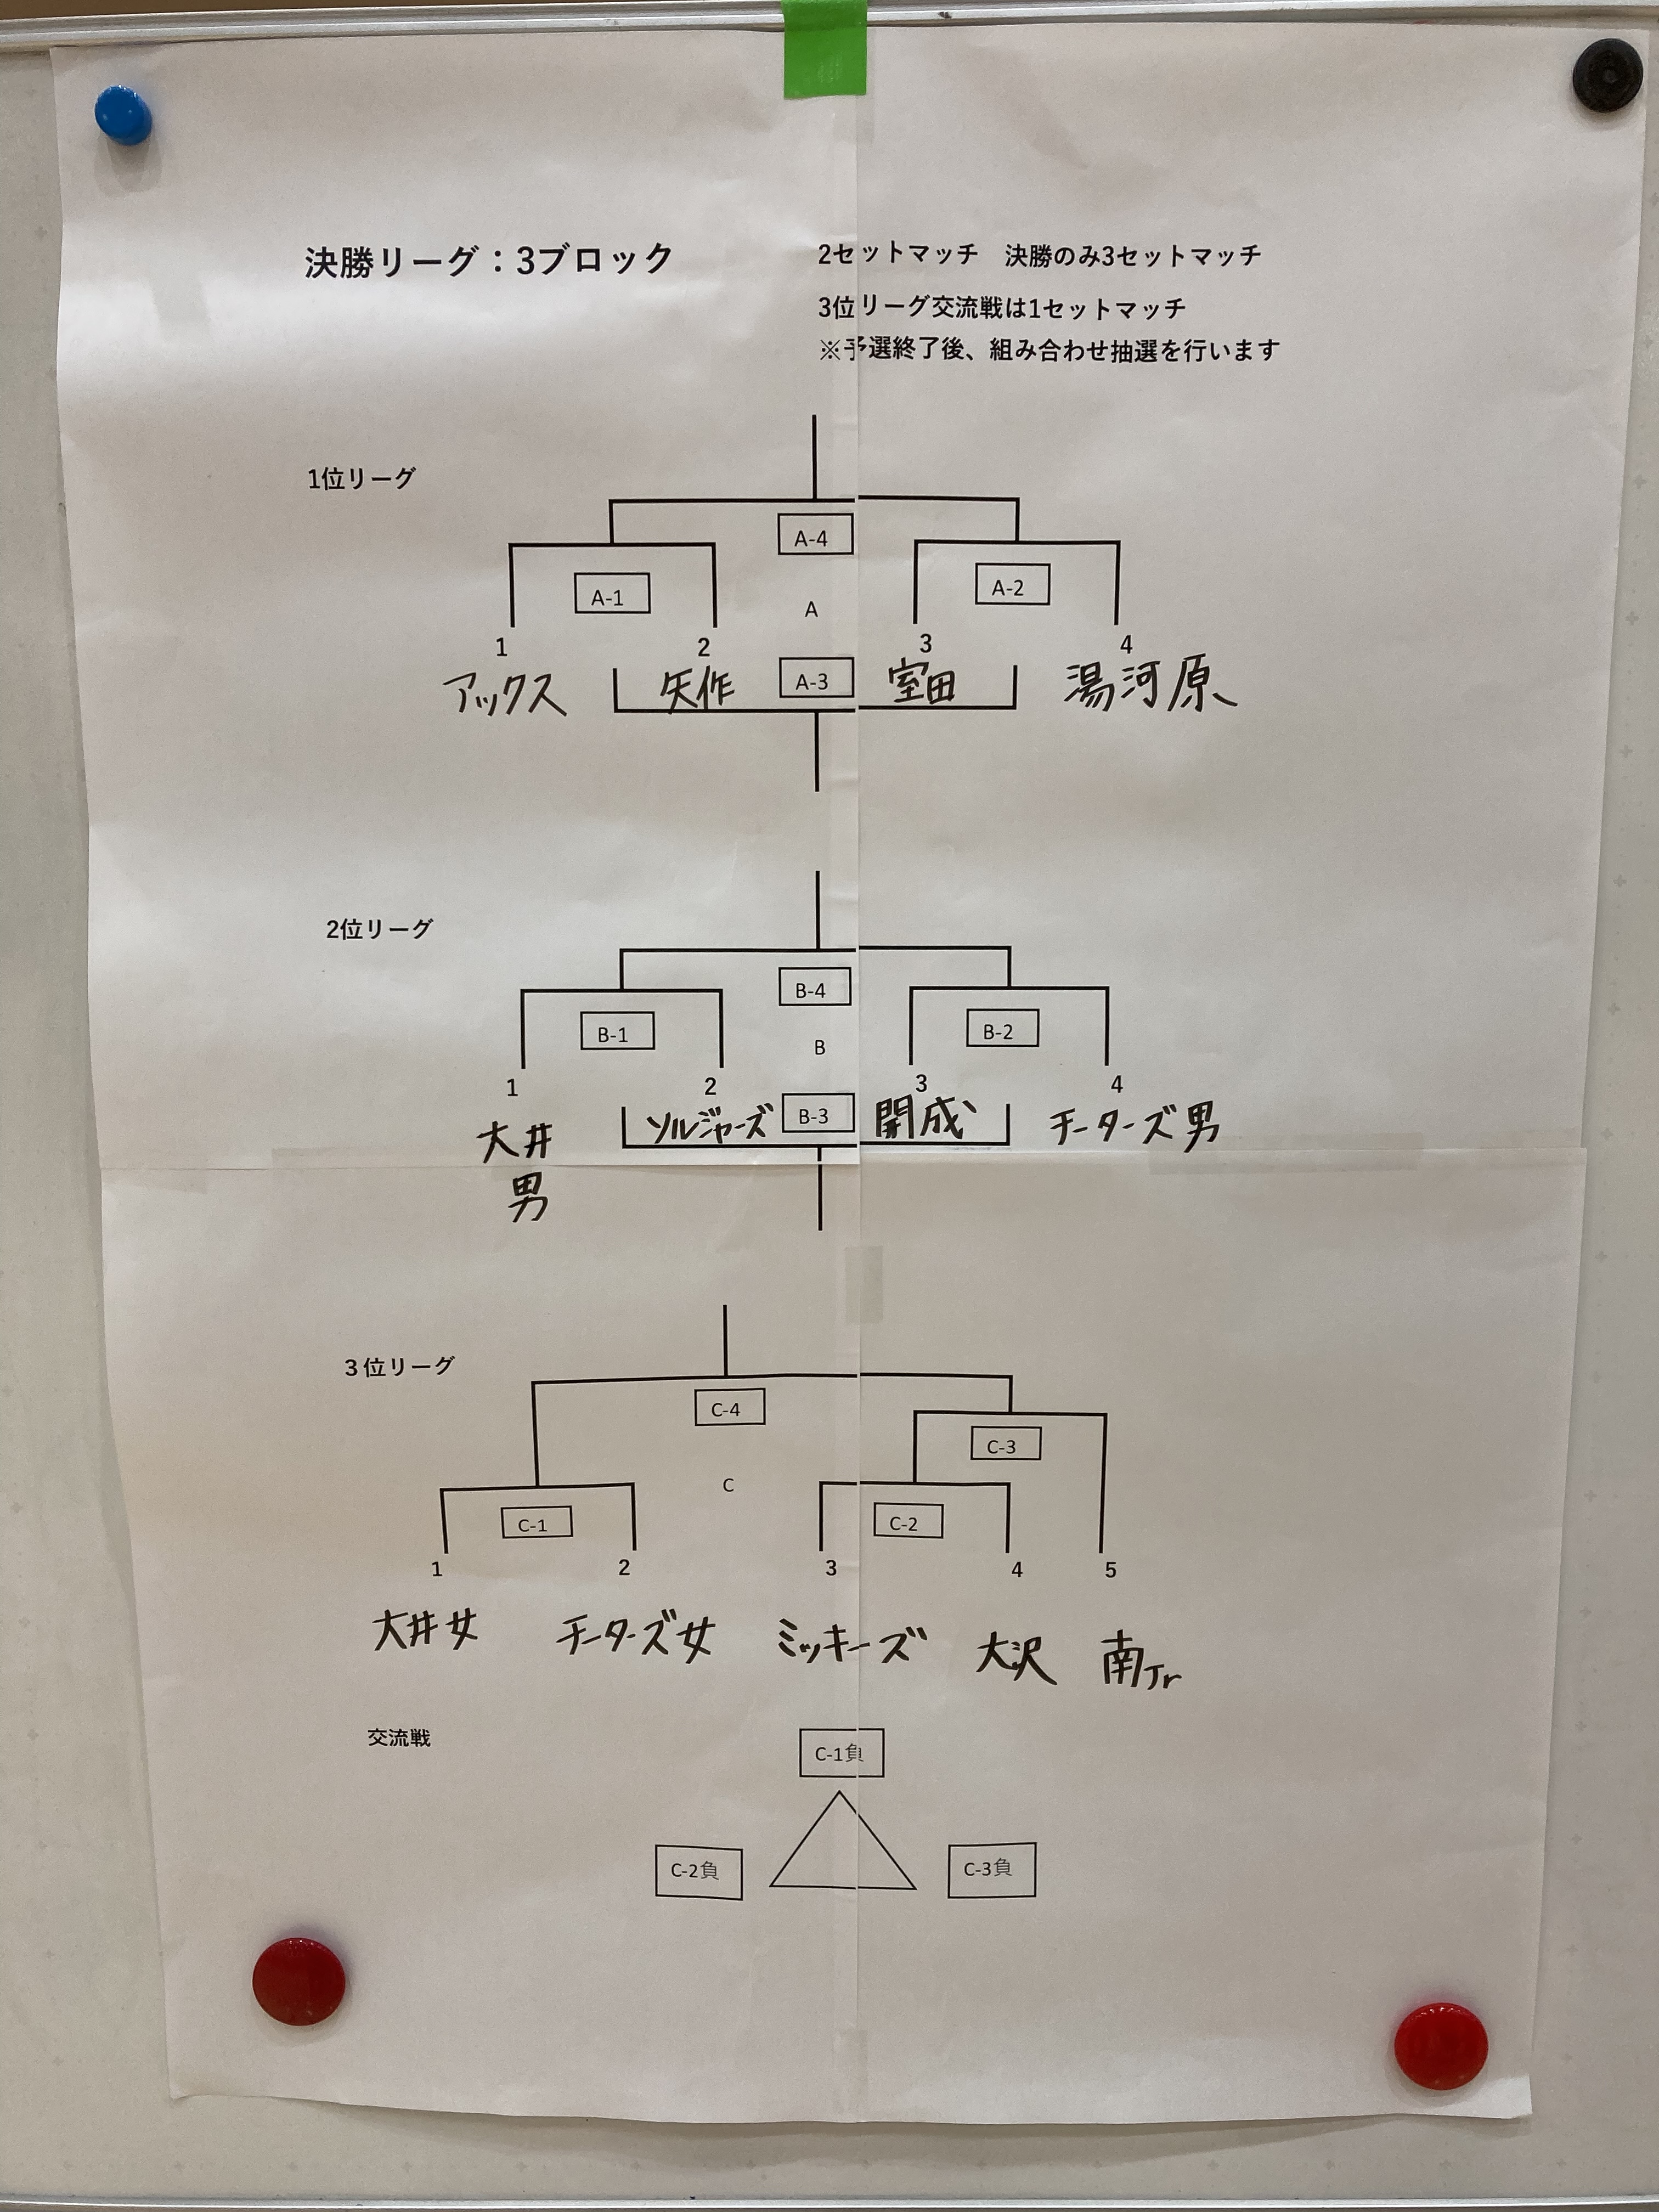 決勝リーグ：3ブロック
2セットマッチ　決勝のみ3セットマッチ
3位リーグ交流戦は1セットマッチ
※予選終了後、組み合わせ抽選を行います
1位リーグ
A-4
A-1 A-2
A
1 2 3 4
アックス 矢作 A-3 室田 湯河原
2位リーグ
B-4
B-1 B-2
B
1 2 3 4
大井男 ソルジャーズ B-3 開成 チーターズ男
３位リーグ
C-4
C-3
C
C-1 C-2
1 2 3 4 5
大井女 チーターズ女 ミッキーズ 大沢 南Jr
交流戦
C-1負
C-2負 C-3負